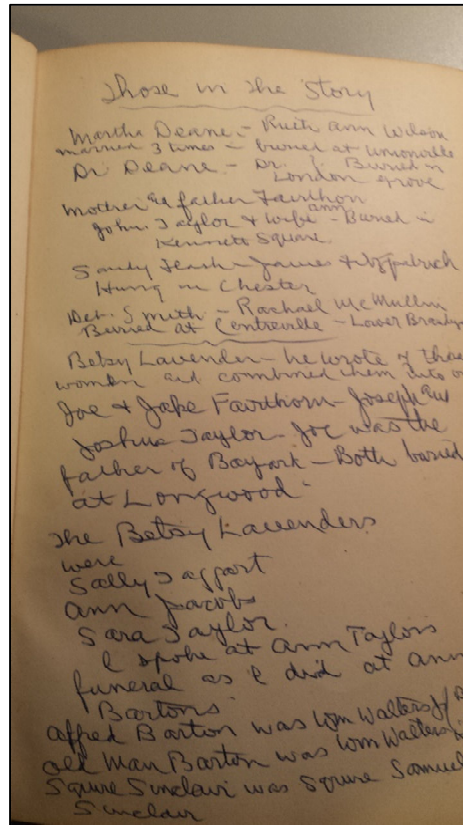 Those in the Story
Martha Deane - Ruth Ann Wilson
married 3 times - buried at Unionville
Dr Deane - Dr. Buried in
London Grove
Mother & father Fairthorn
Ann
John Taylor & wife - Buried in
Kennett Square
Sandy Flash - James Fitzpatrick
Hung in Chester
Deb. Smith - Rachael McMullin
Buried at Centreville - Lower Brandy
Betsy Lavender - he wrote of three
women and combined them into
Joe & Jake Fairthorn - Joseph and
Joshua Taylor - Joe was the
father of Bayark - Both buried
at Longwood
The Betsy Lavenders
were
Sally Taggart
Ann Jacobs
Sara Taylor
I spoke at Ann Taylors
funeral as I did at Ann
Bartons
Alfred Barton was Wm Walters
Old Man Barton was Wm Walters
Squire Sinclair was Squire Samuel
Sinclair